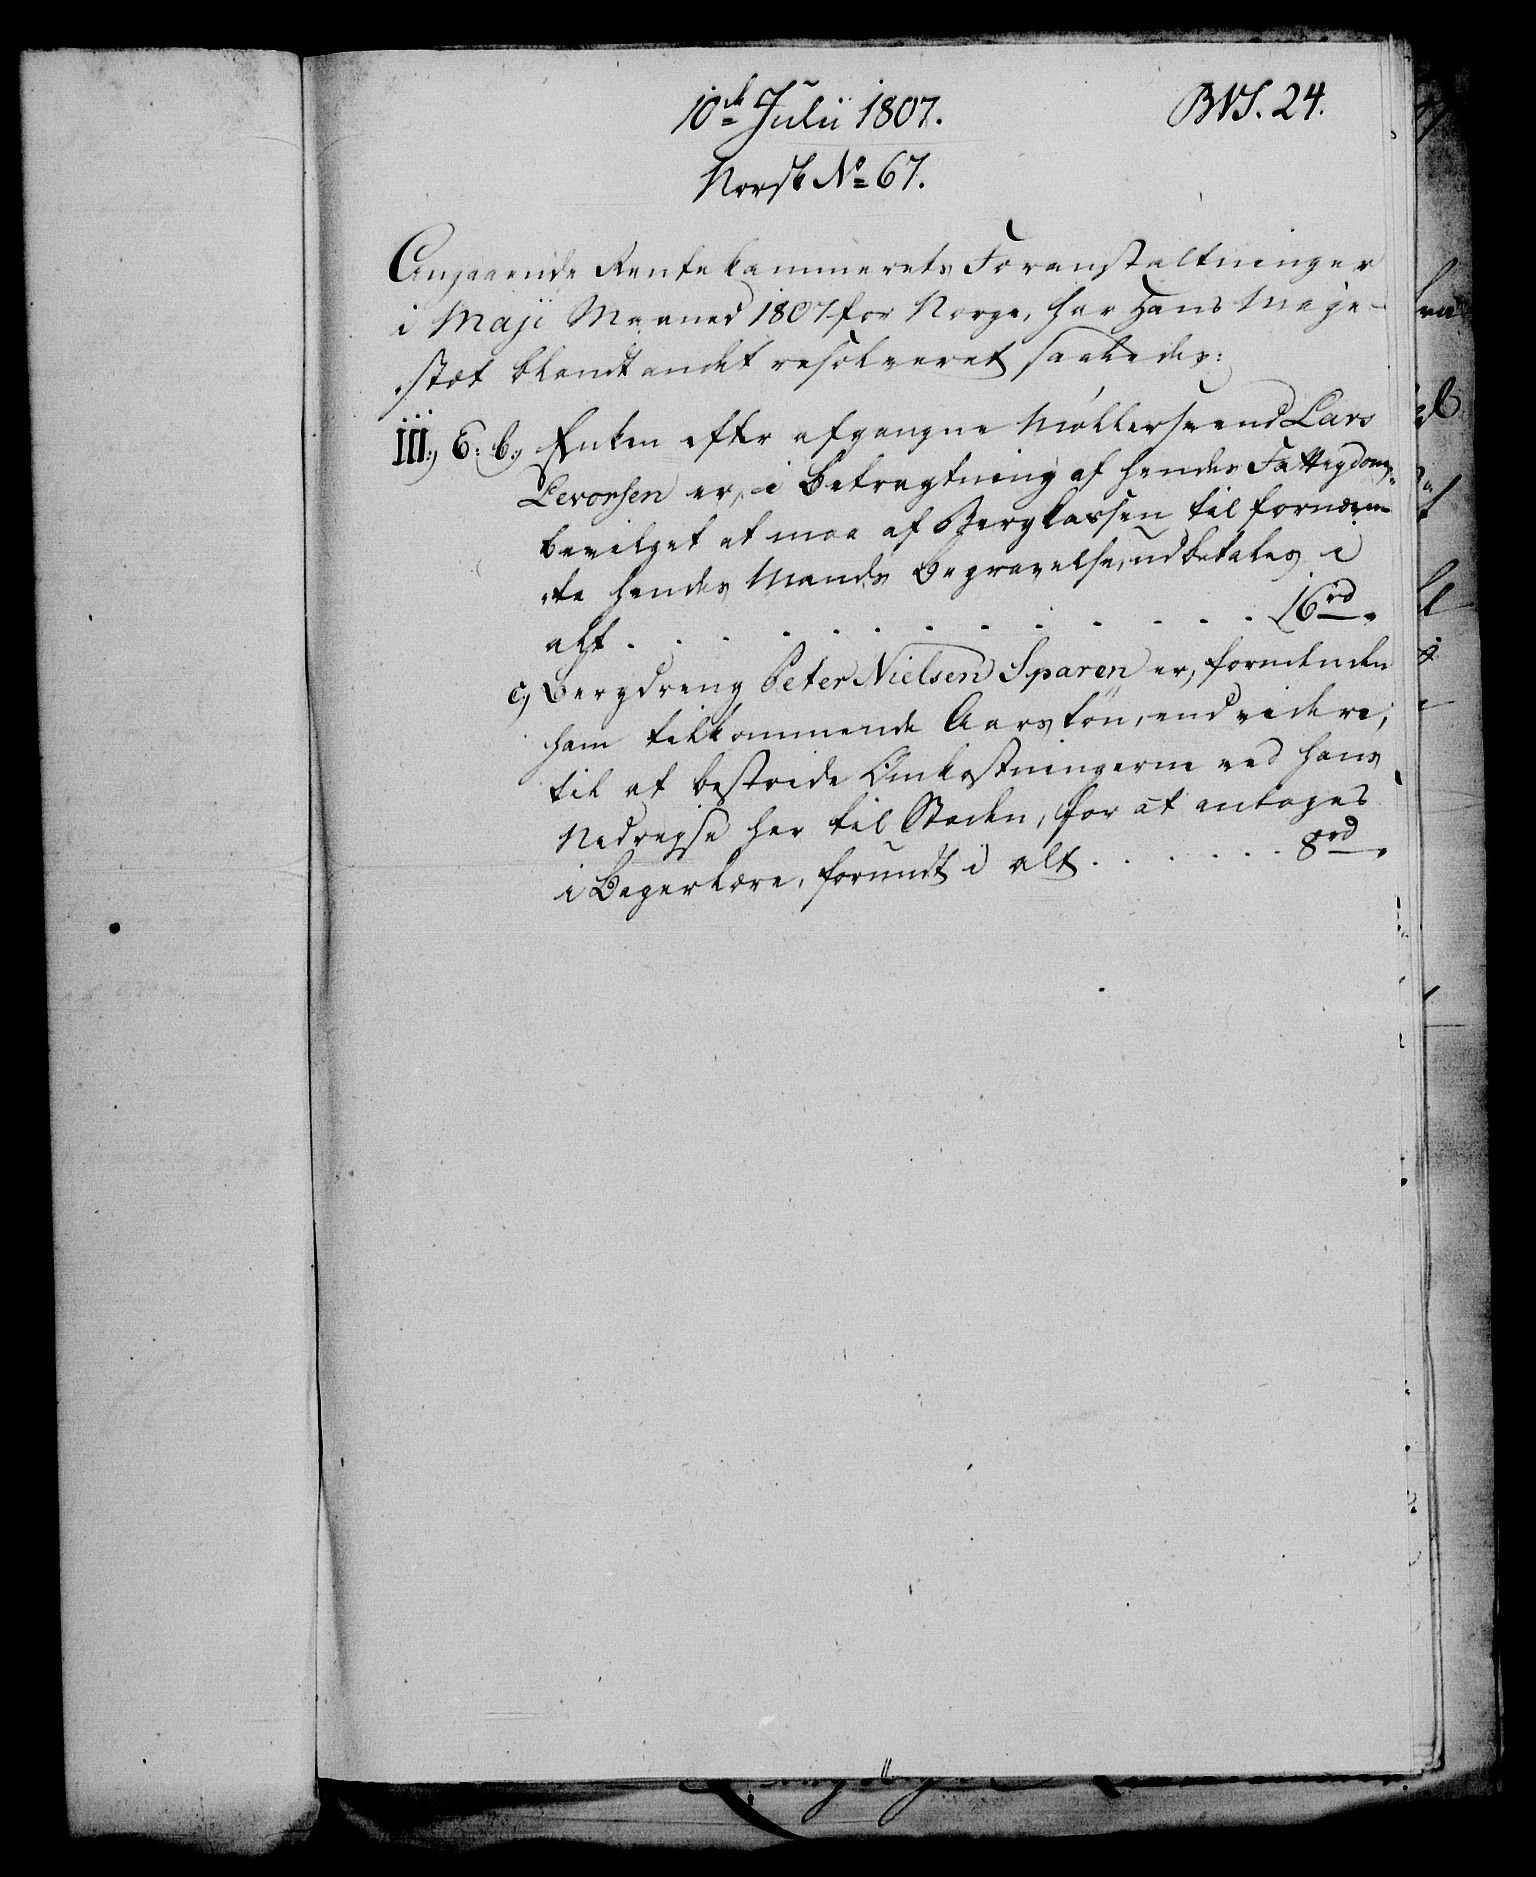 10de Julii 1807.
BVS. 24.
Norsk No 67.
Angaaende Rentekammerets Foranstaltninger
i Maji Maaned 1807 for Norge, har Hans Maje-
stæt blandt andet resolveret saaledes:
III., E: b., Enken efter afgangne Møllersvend Lars
Levorsen er, i Betragtning af hendes Fattigdom,
bevilget at maa af Bergkassen til fornævn-
te hendes Mands Begravelse, udbetales i
alt . . . . . . . . . . . . . 16 rd.
c., Bergdreng Peter Nielsen Sparen er, foruden den
ham tilkommende Aarsløn, endvidere,
til at bestride Omkostningerne ved hans
Nedreyse her til Staden, for at antages
i Bagerlære, forundt i alt . . . . . . . 8 rd.